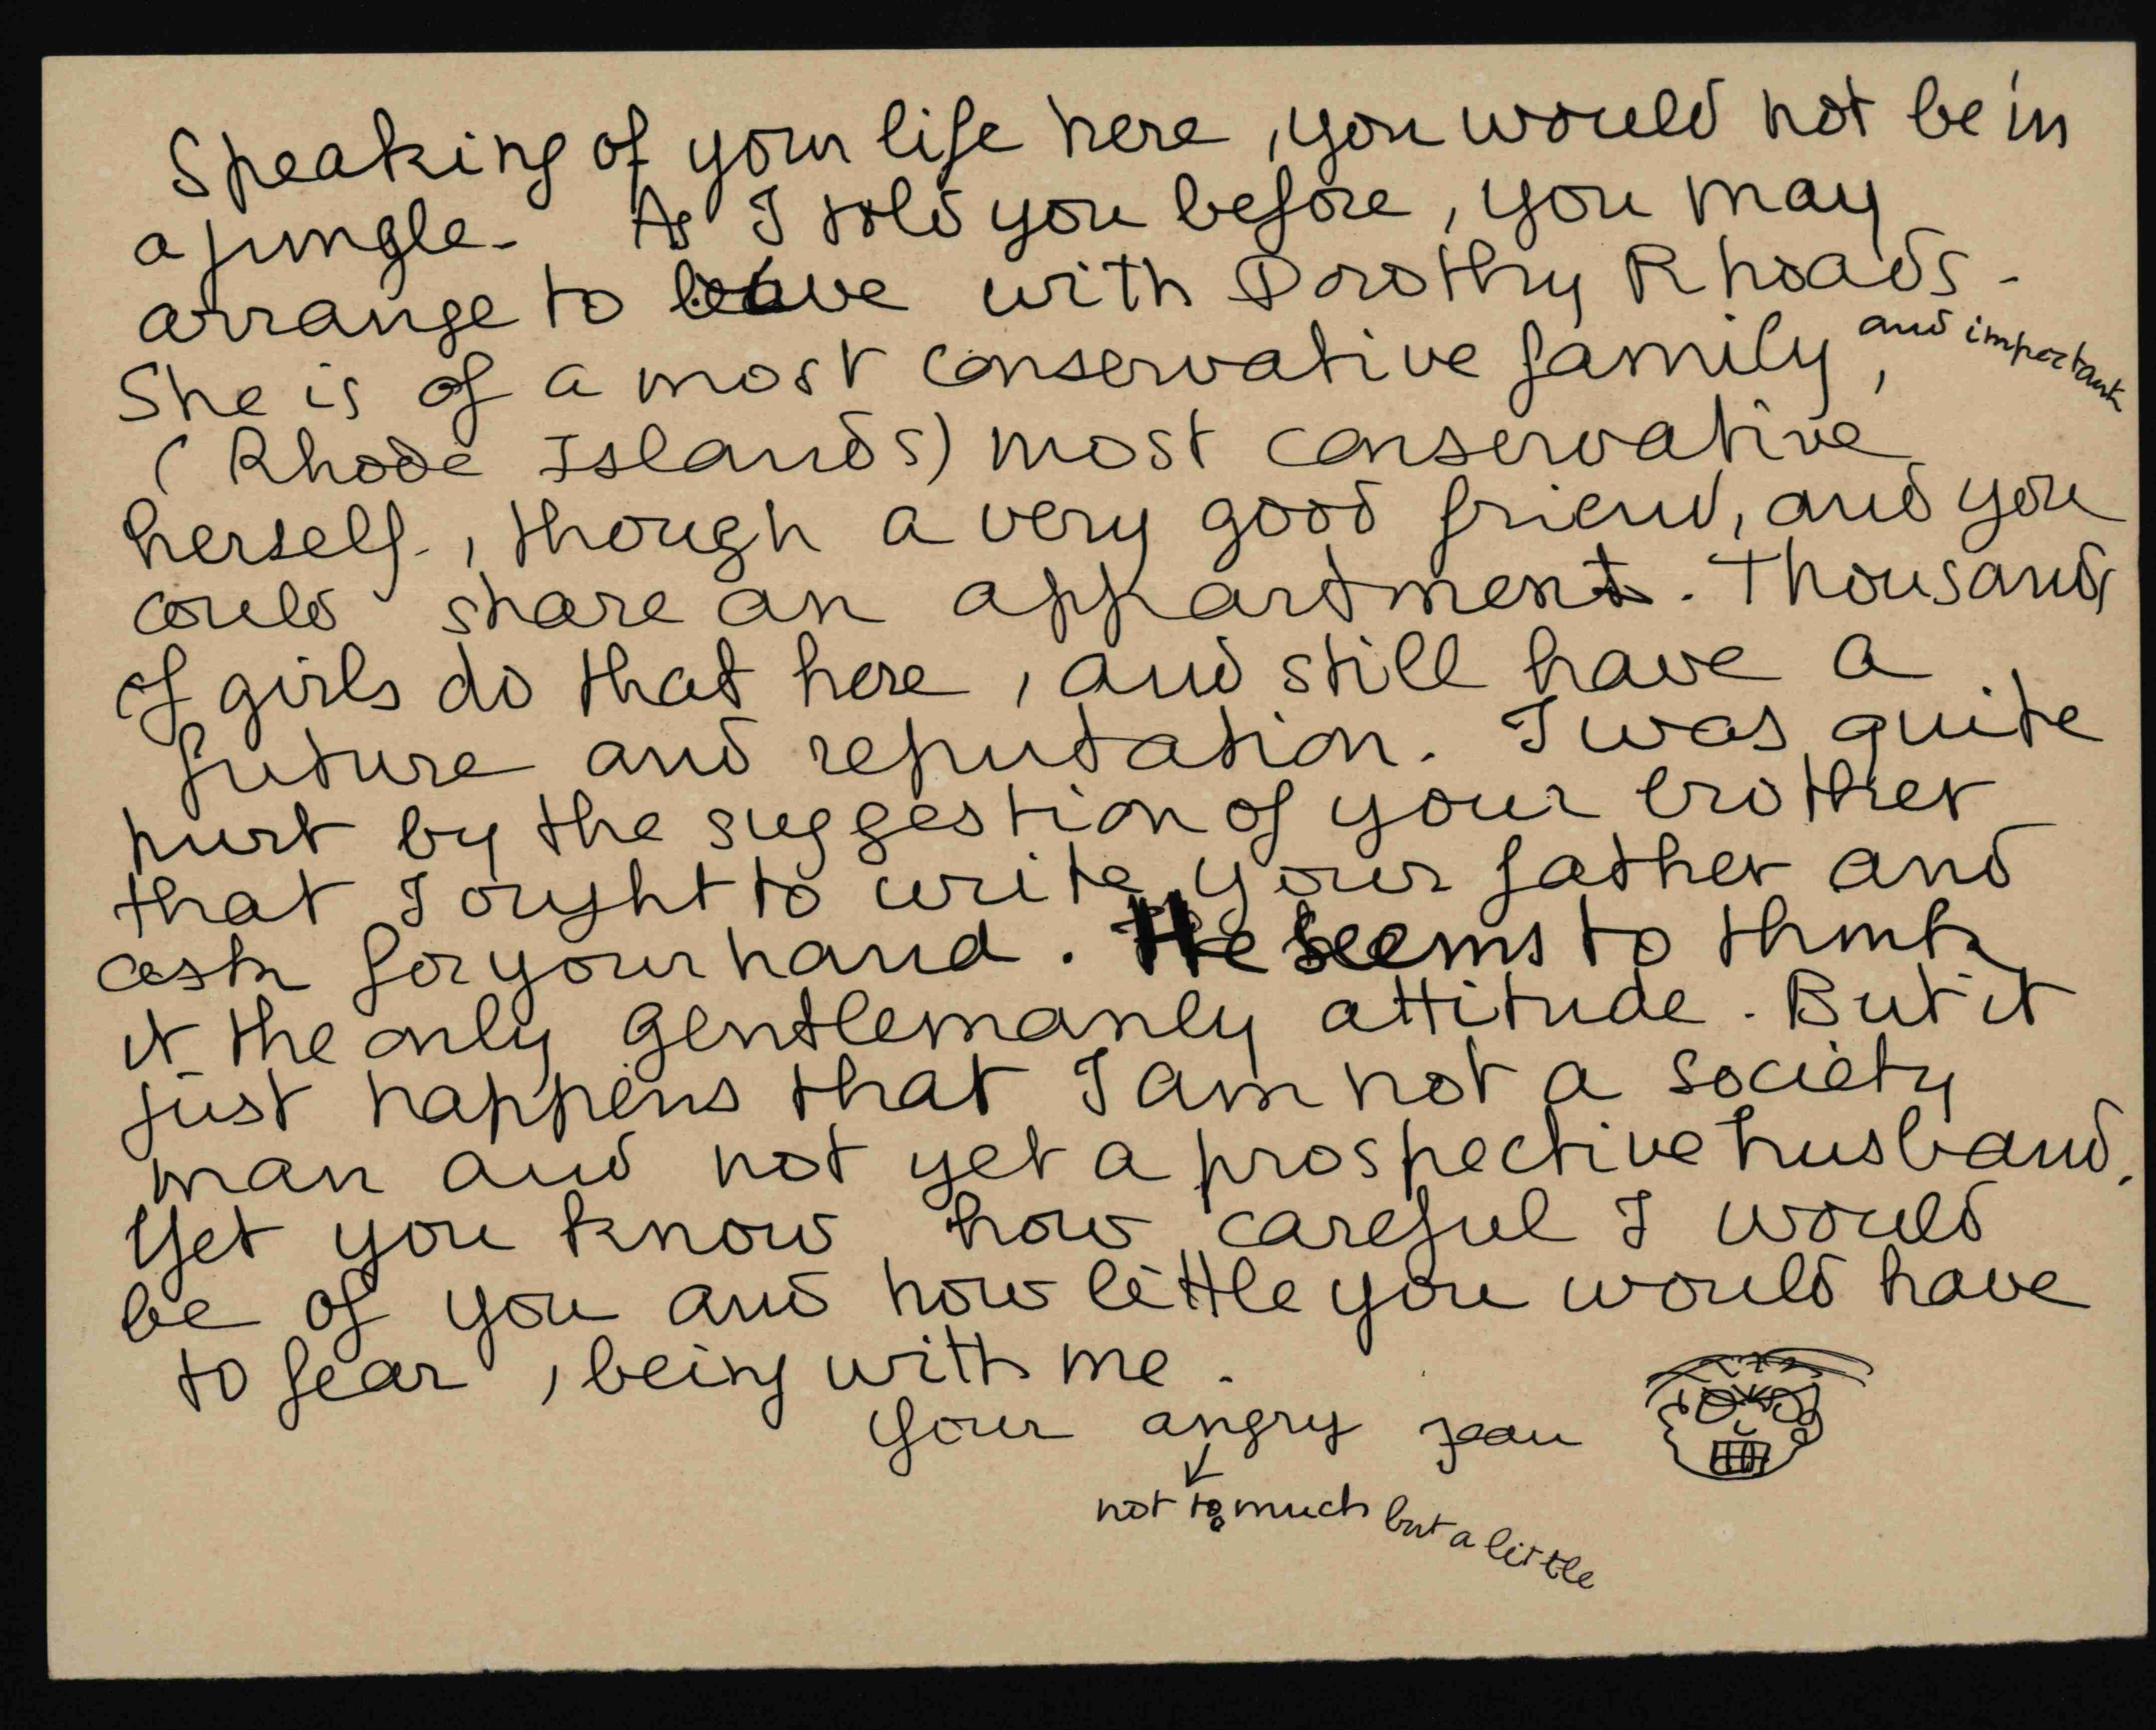 Speaking of your life here, you would not be in
a jungle. As I told you before, you may
arrange to leave with Dorothy Rhoads.
She is of a most conservative family, and important
(Rhode Islands) most conservative
herself, though a very good friend, and you
could share an appartment. Thousands
of girls do that here, and still have a
future and reputation. I was quite
hurt by the suggestion of your brother
that I ought to write your father and
ask for your hand. He seems to think
it the only gentlemanly attitude. But it
just happens that I am not a society
man and not yet a prospective husband.
Yet you know how careful I would
be of you and how little you would have
to fear, being with me.
Your angry Jean
not too much but a little